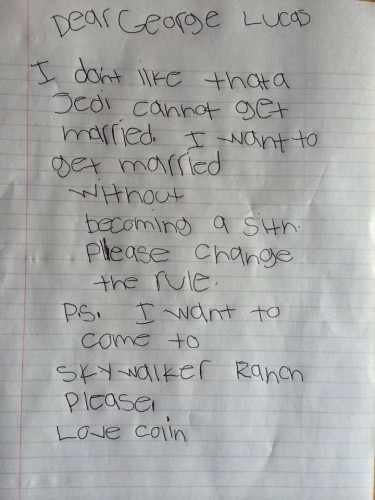 Dear George Lucas
I dont like that a
Jedi cannot get
married. I want to
get married
without
becoming a Sith.
Please change
the rule.
P.S. I want to
come to
SKywalker Ranch
Please.
Love Colin